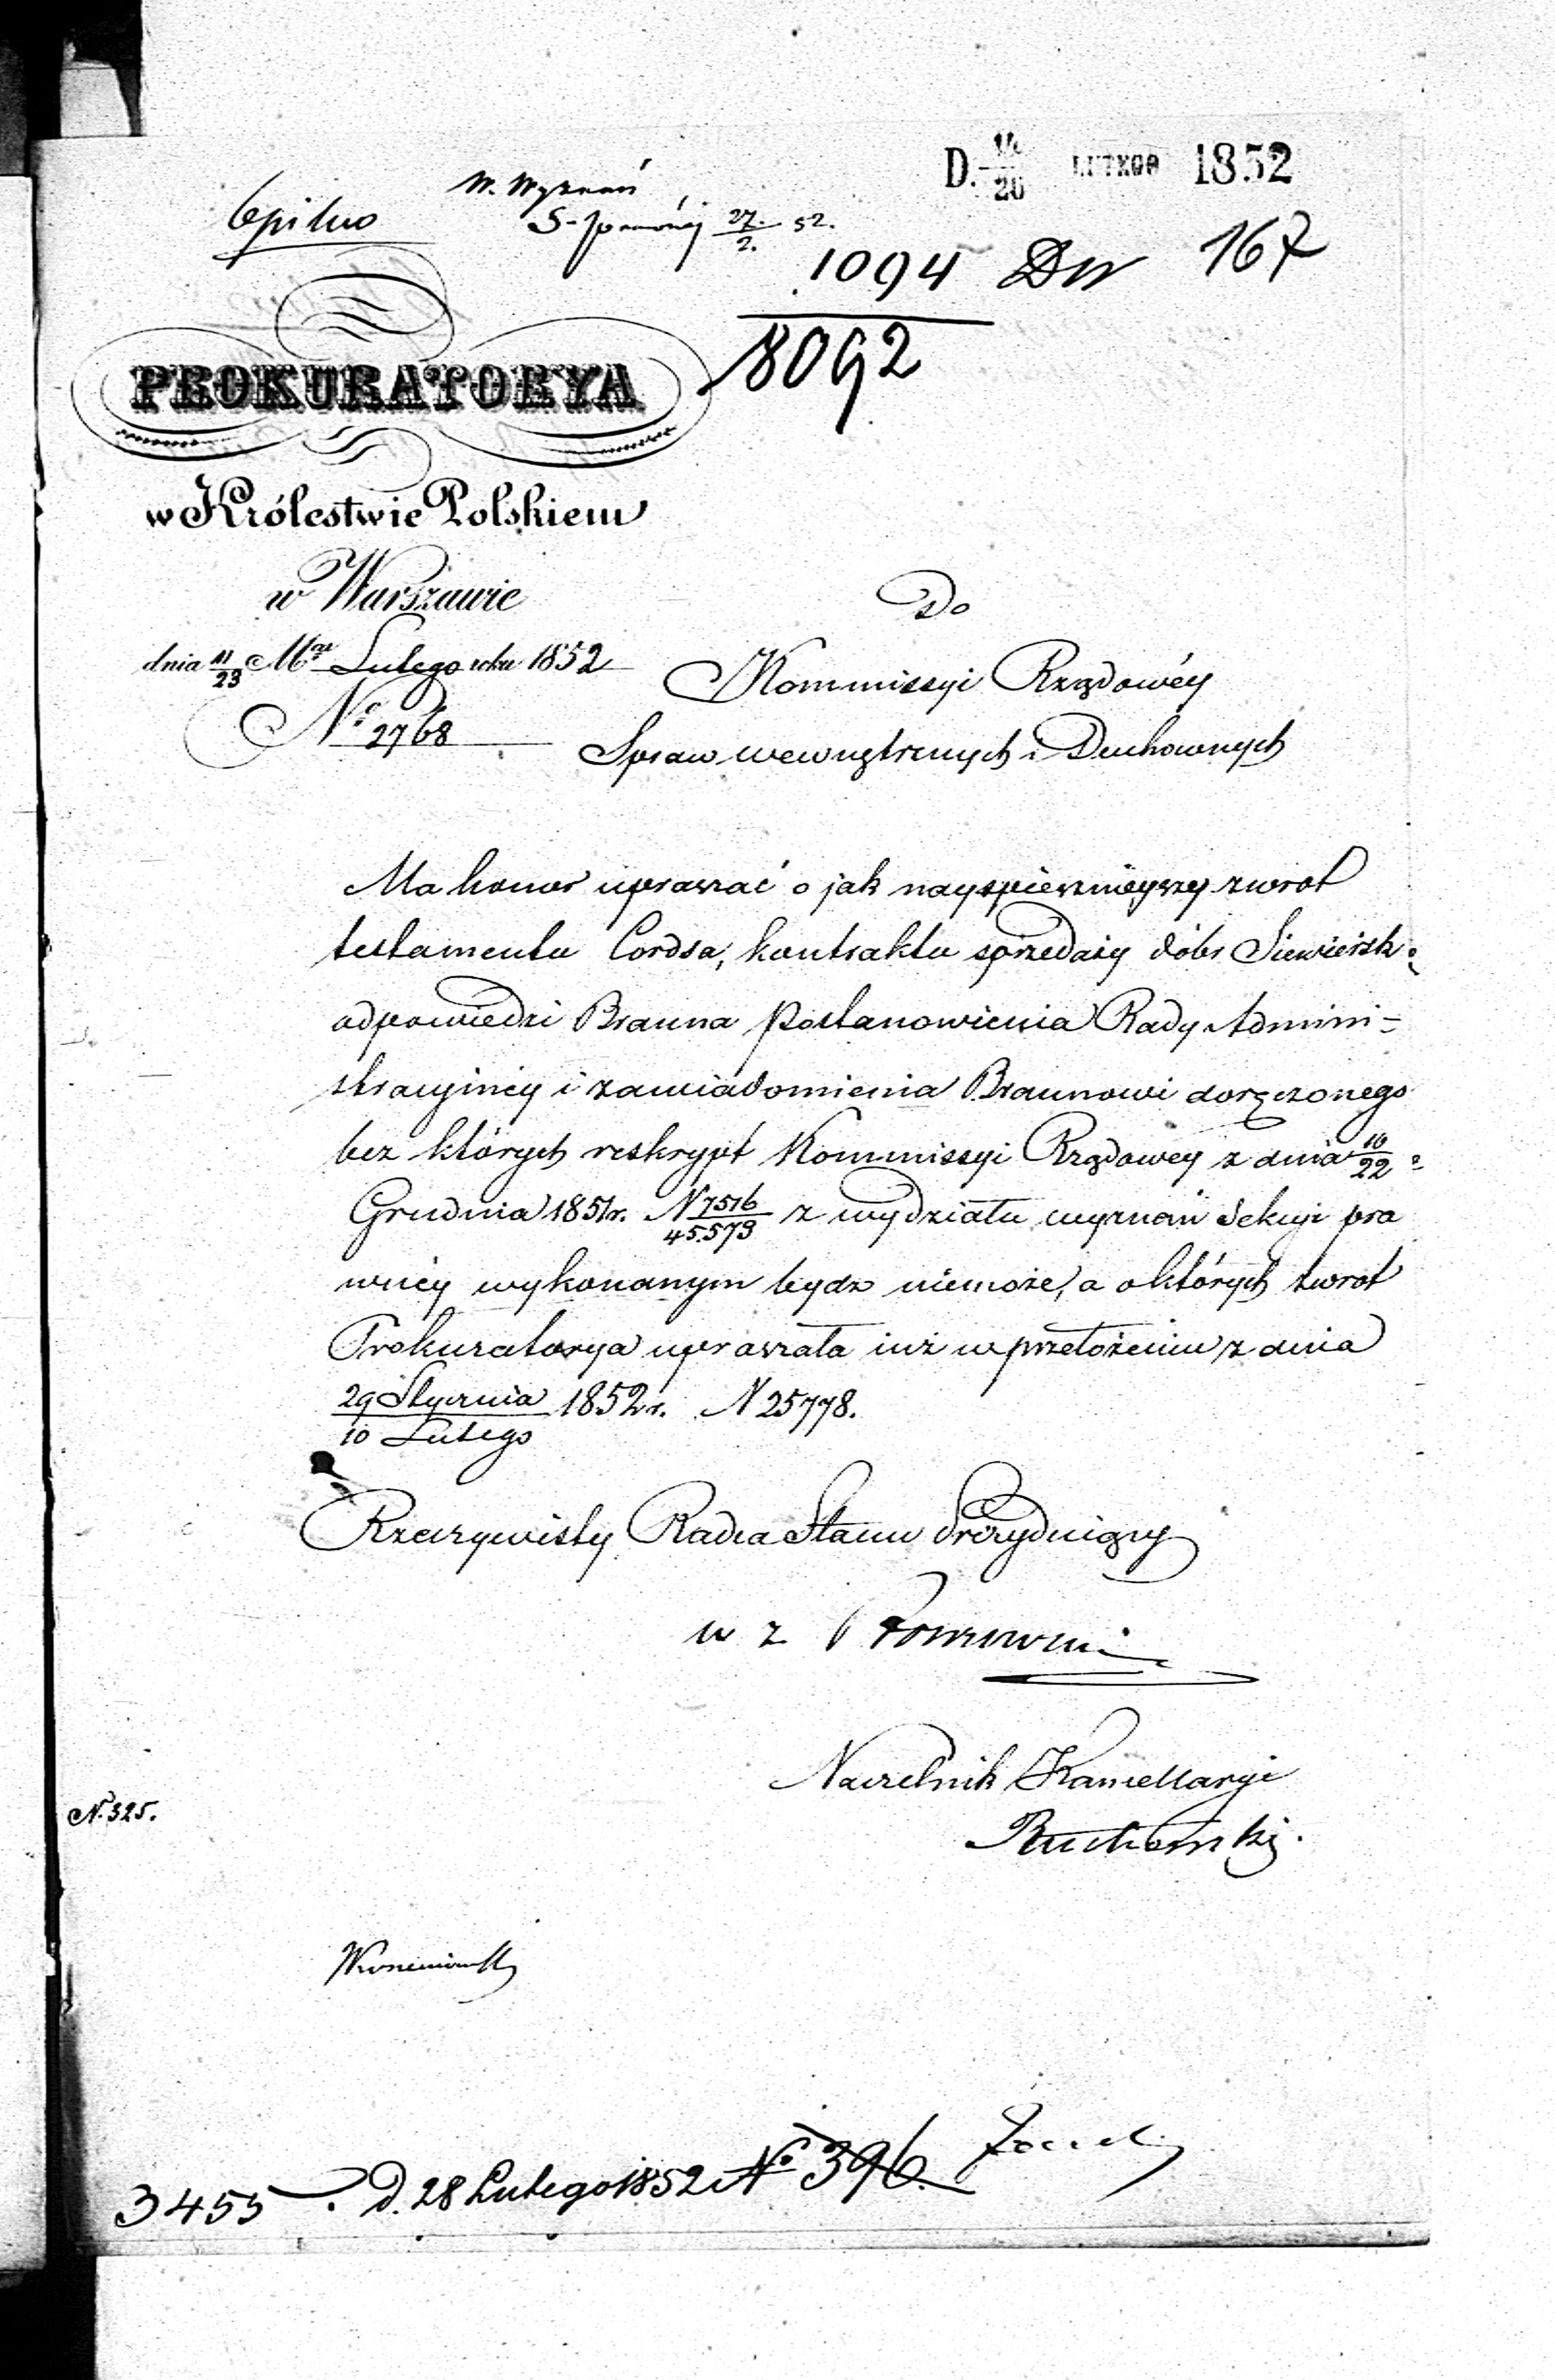 D. 14/26 LUTEGO 1852
W. Wyznań
S. prawnéj 27/2. 52.
1094 DW 167
18092
PROKURATORYA
w Królestwie Polskiem
w Warszawie
dnia 11/23 Mca Lutego roku 1852
No 2768
Do
Kommissyi Rządowéy
Spraw wewnętrznych i Duchownych
Ma honor upraszać o jak nayspieszniéyszy zwrot
testamentu Cordsa, kontraktu sprzedaży dóbr Siewiersk:
odpowiedzi Brauna Postanowienia Rady Admini=
stracyinéy i zawiadomienia Braunowi doręczonego
bez których reskrypt Kommissyi Rządowey z dnia 10/22
Grudnia 1851r. N 7516/45.579 z wydziału wyznań Sekcyi pra
wnéy wykonanym bydz niemoże, a o których zwrot
Prokuratorya upraszała iuż w przełożeniu z dnia
29 Stycznia/10 Lutego 1852r. N 25778.
Rzeczywisty Radca Stanu Prezyduiący
w z
Naczelnik Kancellaryi
N. 325.
3455 D. 28 Lutego 1852 No 396.